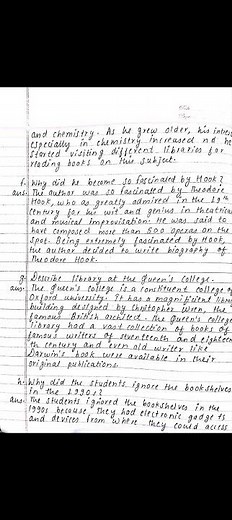 and chemistry. As he grew older, his inters
especially in chemistry increased nd he
started visiting different libraries for
reading books on this subject.
f. Why did he become so fascinated by Hook?
ans. The author was so fascinated by Theodore
Hook, who as greatly admired in the 19th
century for his wit and genius in theatrica
and musical improvisation. He was said to
have composed more than 500 operas on the
spot. Being extremely fascinated by Hook,
the author decided to write biography of
Theodore Hook.
g. Describe library at the Queen's College.
ans. The Queen's college is a constituent college of
Oxford university. It has a magnificient libra
building designed by Christopher Wren, the
famous British architect. The Queen's college
library had a vast collection of books of
famous writers of seventeenth and eighteen
th century and even old writer like
Darwin's book were available in their
original publications.
h. Why did the students ignore the bookshelves
in the 1990s?
ans. The students ignored the bookshelves in the
1990s because, they had electronic gadge ts
and devises from where they could access